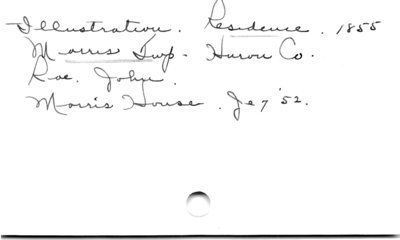 Illustration. Residence. 1855
Morris Twp. Huron Co.
Roe. John.
Morris House. Je 7 '52.